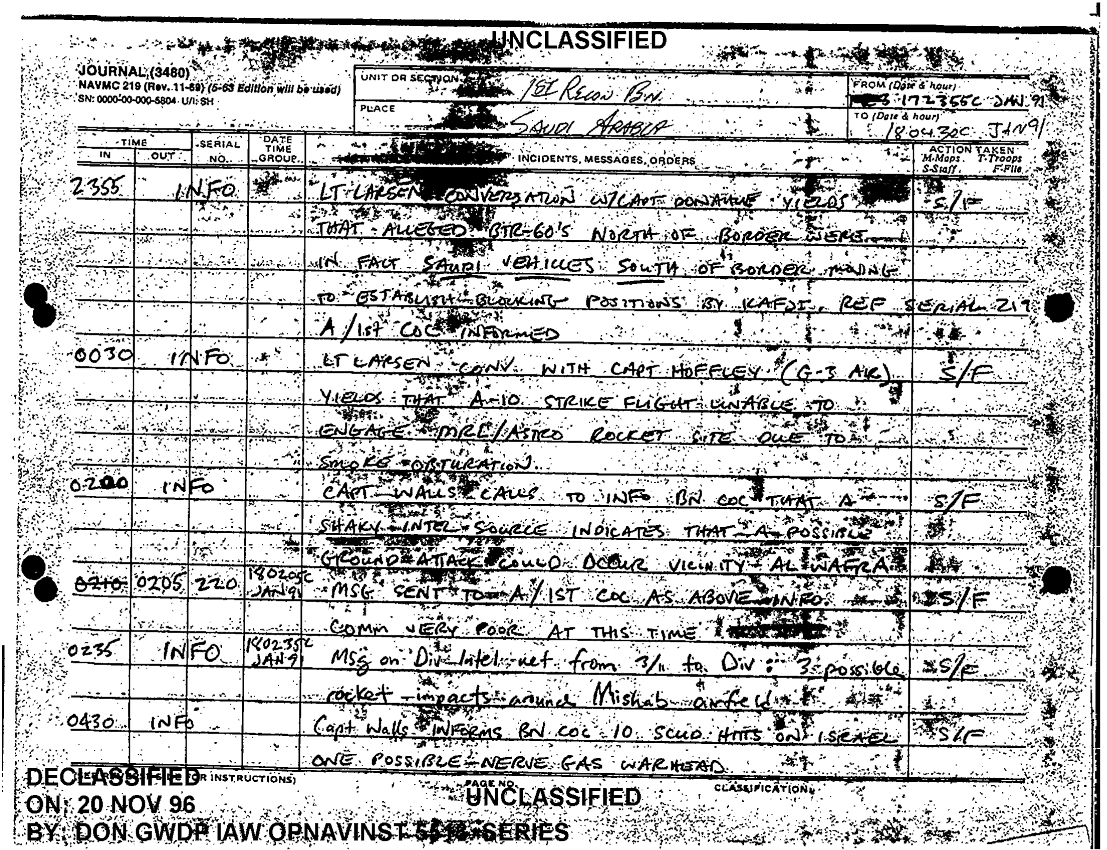 UNCLASSIFIED
JOURNAL (3480)
NAVMC 219 (Rev. 11-69) (5-63 Edition will be used)
SN: 0000-00-000-5804 U/I: SH
UNIT OR SECTION 1ST RECON BN.
PLACE SAUDI ARABIA
FROM (Date & hour) 172355C JAN 91
TO (Date & hour) 180430C JAN 91
TIME IN OUT SERIAL NO. DATE TIME GROUP INCIDENTS, MESSAGES, ORDERS ACTION TAKEN M-Maps T-Troops S-Staff F-File
2355 INFO LT LARSEN CONVERSATION W/CAPT DONAHUE YIELDS S/F
THAT ALLEGED BTR-60'S NORTH OF BORDER WERE
IN FACT SAUDI VEHICLES SOUTH OF BORDER MOVING
TO ESTABLISH BLOCKING POSITIONS BY KAFJI. REF SERIAL 217
A/1ST COC INFORMED
0030 INFO LT LARSEN CONV. WITH CAPT HOFFLEY (G-3 AIR) S/F
YIELDS THAT A-10 STRIKE FLIGHT UNABLE TO
ENGAGE MRL/ASTRO ROCKET SITE DUE TO
SMOKE OBTURATION.
0200 INFO CAPT WALLS CALLS TO INFO BN COC THAT A S/F
SHAKY INTEL SOURCE INDICATES THAT A POSSIBLE
GROUND ATTACK COULD OCCUR VICINITY AL WAFRA
0210 0205 220 180205C JAN 91 MSG SENT TO A/1ST COC AS ABOVE INFO S/F
COMM VERY POOR AT THIS TIME
0235 INFO 180235C JAN 91 Msg on Div Intel net from 3/11 to Div: 3 possible S/F
rocket impacts around Mishab airfield
0430 INFO Capt Walls INFORMS BN COC 10 SCUD HITS ON ISRAEL S/F
ONE POSSIBLE NERVE GAS WARHEAD.
FOR INSTRUCTIONS) PAGE NO. CLASSIFICATION
UNCLASSIFIED
DECLASSIFIED
ON: 20 NOV 96
BY: DON GWDP IAW OPNAVINST SERIES